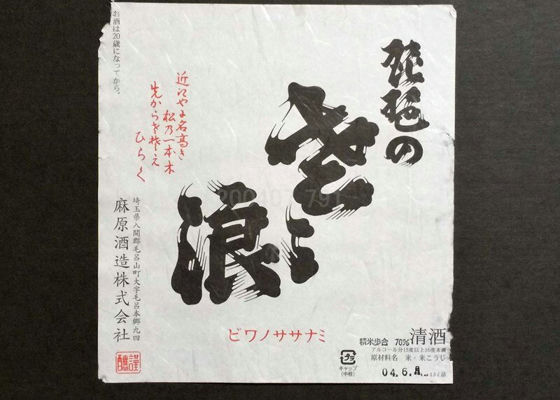 琵琶の
さゝ浪
近江や名高き
松乃一本木
先からさ栄え
ひらく
ビワノササナミ
お酒は20歳になってから。
埼玉県入間郡毛呂山町大字毛呂本郷九四
麻原酒造株式会社
清酒
精米歩合 70%
アルコール分15度以上16度未満
原材料名 米・米こうじ
キャップ
(中栓)
04.6.